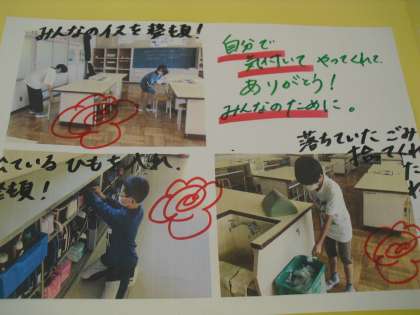 みんなのイスを整頓!
自分で
気付いて やってくれて
ありがとう!
みんなのために。
落ちていたごみ
捨てくれ
た
ているひもを入れ、
整頓!